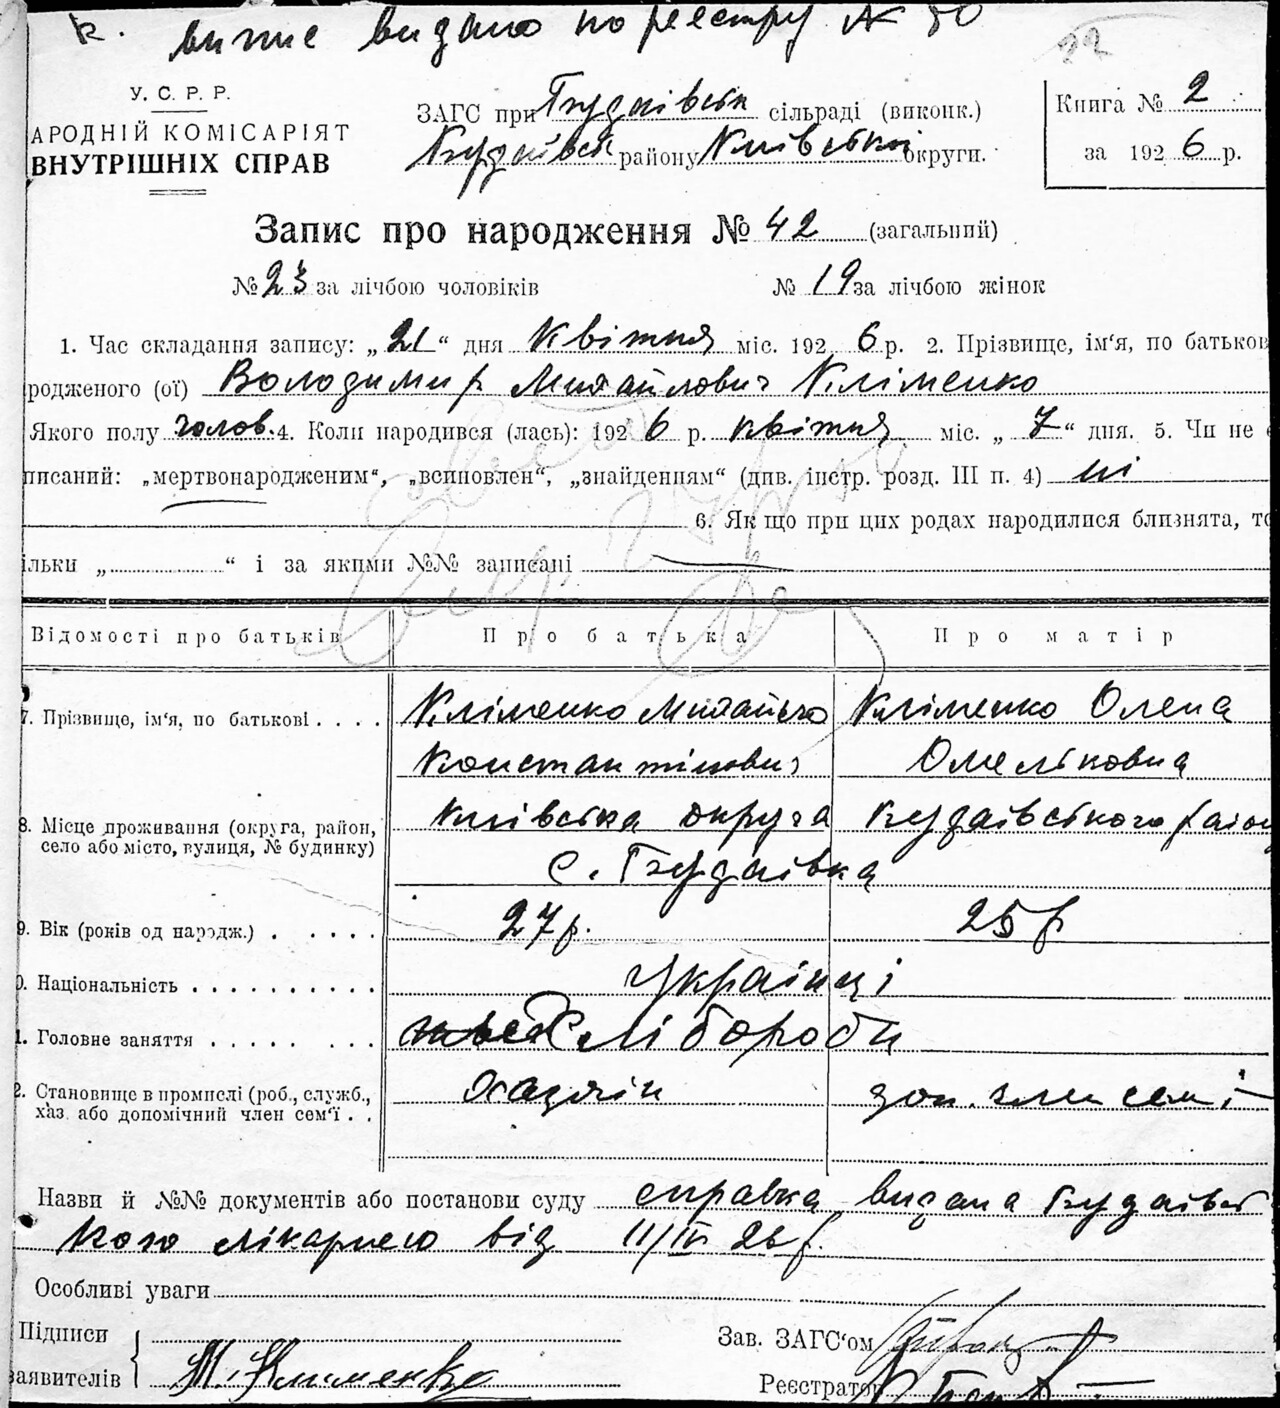 випис видано по реєстру № 50
22
У. С. Р. Р.
АРОДНІЙ КОМІСАРІЯТ
ВНУТРІШНІХ СПРАВ
ЗАГС при Будаївськ сільраді (виконк.)
Будаївськ району Київської округи.
Книга № 2
за 1926 р.
Запис про народження № 42 (загальний)
№ 23 за лічбою чоловіків № 19 за лічбою жінок
1. Час складання запису: „21“ дня Квітня міс. 1926 р. 2. Прізвище, ім‘я, по батьков
родженого (ої) Володимир Михайлович Кліменко
Якого полу чолов. 4. Коли народився (лась): 1926 р. квітня міс. „7“ дня. 5. Чи не
писаний: „мертвонародженим“, „всиновлен“, „знайденням“ (див. інстр. розд. III п. 4) ні
6. Як що при цих родах народилися близнята, то
ільки „ “ і за якими №№ записані
Відомості про батьків Про батька Про матір
7. Прізвище, ім‘я, по батькові . . . . Кліменко Михайло Кліменко Олена
Константінович Омельковна
8. Місце проживання (округа, район, село або місто, вулиця, № будинку) Київська округа Будаївського район
с. Будаївка
9. Вік (років од народж.) . . . . . . 27 р. 25 р
0. Національність . . . . . . . . . . Українці
1. Головне заняття . . . . . . . . Хлібороби
2. Становище в промислі (роб., служб., хаз. або допомічний член сем‘ї . . Хазяїн доп. член семї
Назви й №№ документів або постанови суду справка видана Будаївсь
кою лікарнею від 11/IV 26 р.
Особливі уваги
Підписи
аявителів М. Клименко
Зав. ЗАГС‘ом
Реєстратор